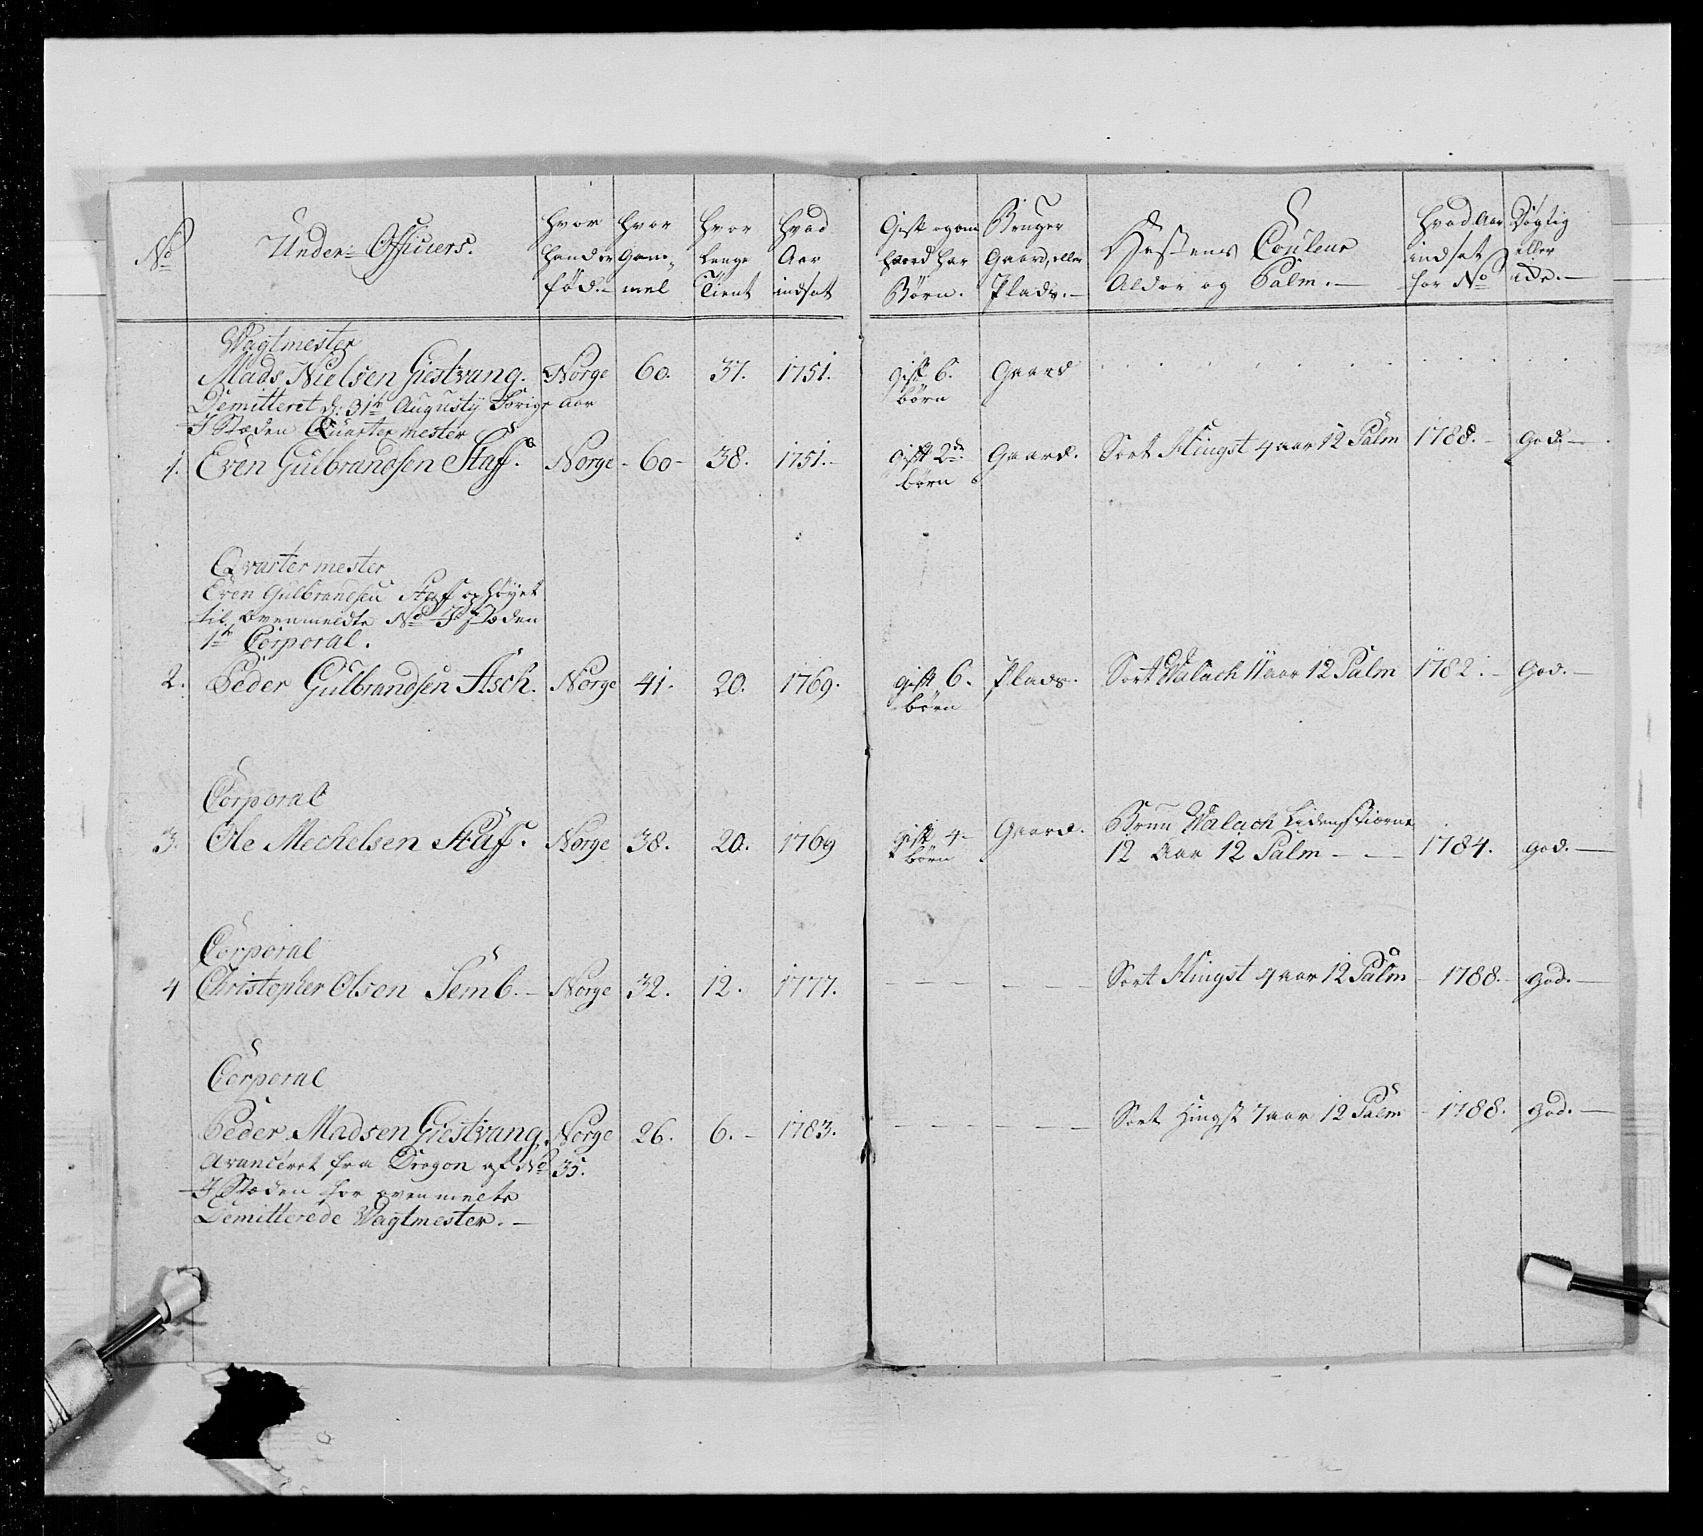 No
Under-Officiers.
hvor
hand er
fød.-
hvor
Gam-
mel
hvor
Længe
Tient
hvad
Aar
indsat
Gift og om
hand har
Børn.
Bruger
Gaard, eller
Plads.-
Hestens Couleur
Alder og Palm.-
hvad Aar
indsat
for No
Døgtig
eller
ide.-
Vagtmester
Mads Nielsen Giestvang. Norge 60. 37. 1751. gift 6. Gaard
børn
Demitteret d: 31te Augusty Forige aar
I Stæden Quartermester
1. Even Gulbrandsen Staff. Norge - 60 - 38. 1751.- Gift 2de Gaard. Sort Hingst 4 aar 12 Palm 1788.- god.-
børn
Qvartermester
Even Gulbrandsen Staff ophøyet
til ovenmeldte No I Stæden
1te Corporal.
2. Peder Gulbrandsen Asch. Norge 41. 20. 1769. gift 6. Plads. Sort Valach 11 aar 12 Palm 1782.- God.-
børn
Corporal
3. Ole Mechelsen Staff. Norge 38. 20. 1769 gift 4- Gaard. Brun Valach Liden Stierne
børn 12 Aar 12 Palm - - 1784. god.-
Corporal
4 Christopher Olsen Semb.- Norge 32. 12. 1777. - - - - - - Sort Hingst 4 aar 12 Palm - 1788.- god.-
Corporal
Peder Madsen Giestvang. Norge 26. 6.- 1783. - - - - - - Sort Hingst 7 aar 12 Palm - 1788. god.-
Avanceret fra Dragon af No 35.
I Stæden for ovenmelte
Demitterede Vagtmester.-